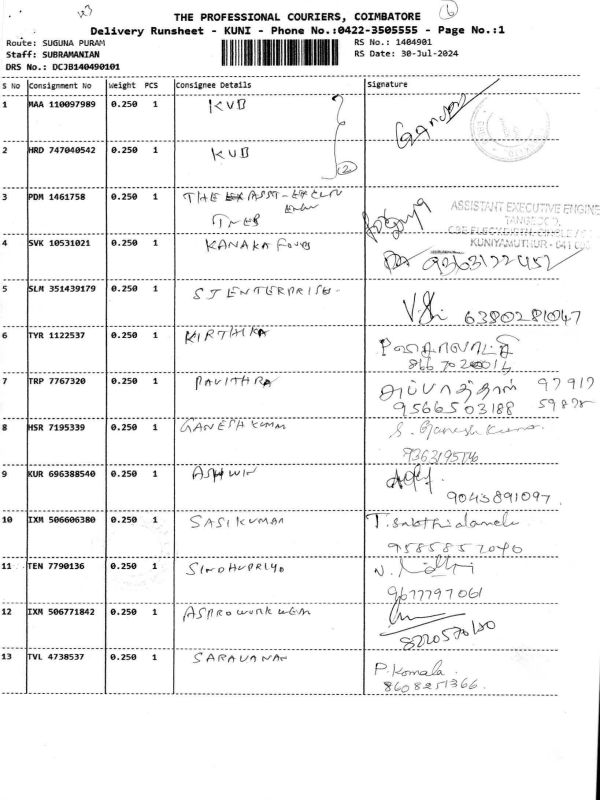 THE PROFESSIONAL COURIERS, COIMBATORE
Delivery Runsheet - KUNI - Phone No.:0422-3505555 - Page No.:1
Route: SUGUNA PURAM RS No.: 1404901
Staff: SUBRAMANIAN RS Date: 30-Jul-2024
DRS No.: DCJB140490101
S No Consignment No Weight PCS Consignee Details Signature
1 MAA 110097989 0.250 1 KVB
2 HRD 747040542 0.250 1 KVB 2
3 PDM 1461758 0.250 1 THE ASST-EXECUN
TNEB
ASSISTANT EXECUTIVE ENGINE
KUNIYAMUTHUR - 641 008
4 SVK 10531021 0.250 1 KANAKA 9363122452
5 SLM 351439179 0.250 1 SJ ENTERPRISE- 6380281047
6 TYR 1122537 0.250 1 KIRTHIKA
7 TRP 7767320 0.250 1 PAVITHRA 97917
9566503188 59878
8 HSR 7195339 0.250 1 GANESH KUMAR S. Ganesh Kumar.
9 KUR 696388540 0.250 1 ASHWIN
9043891097.
10 IXM 506606380 0.250 1 SASIKUMAR
9585857040
11 TEN 7790136 0.250 1 SINDHUPRIYA
9677797061
12 IXM 506771842 0.250 1 ASPROWORKWEAR
13 TVL 4738537 0.250 1 SARAVANAN P. Komala.
8608251366.